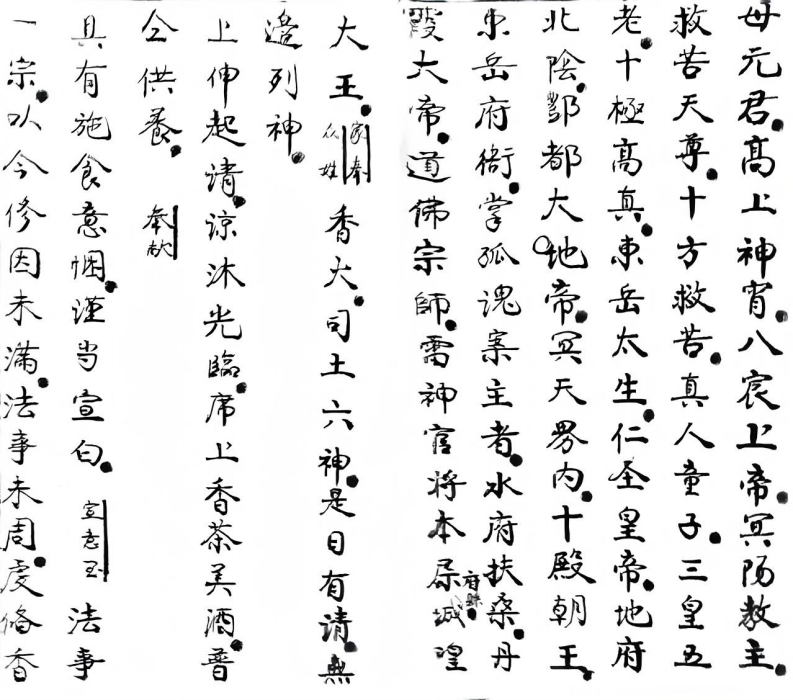 母元君髙上神宵八宸上帝冥阳教主
救苦天尊十方救苦真人童子三皇五
老十極髙真東岳太生仁圣皇帝地府
北陰酆都大地帝冥天界内十殿朝王
东岳府衙掌孤魂案主者水府扶桑丹
霞大帝道佛宗師雷神官将本属府縣城隍
大王家奉众姓香大司土六神是日有请無
邉列神
上伸起请谅沐光臨席上香茶美酒普
仝供養 奉献
具有施食意悃谨当宣白 宣意 法事
一宗以今修因未满法事未周虔俻香